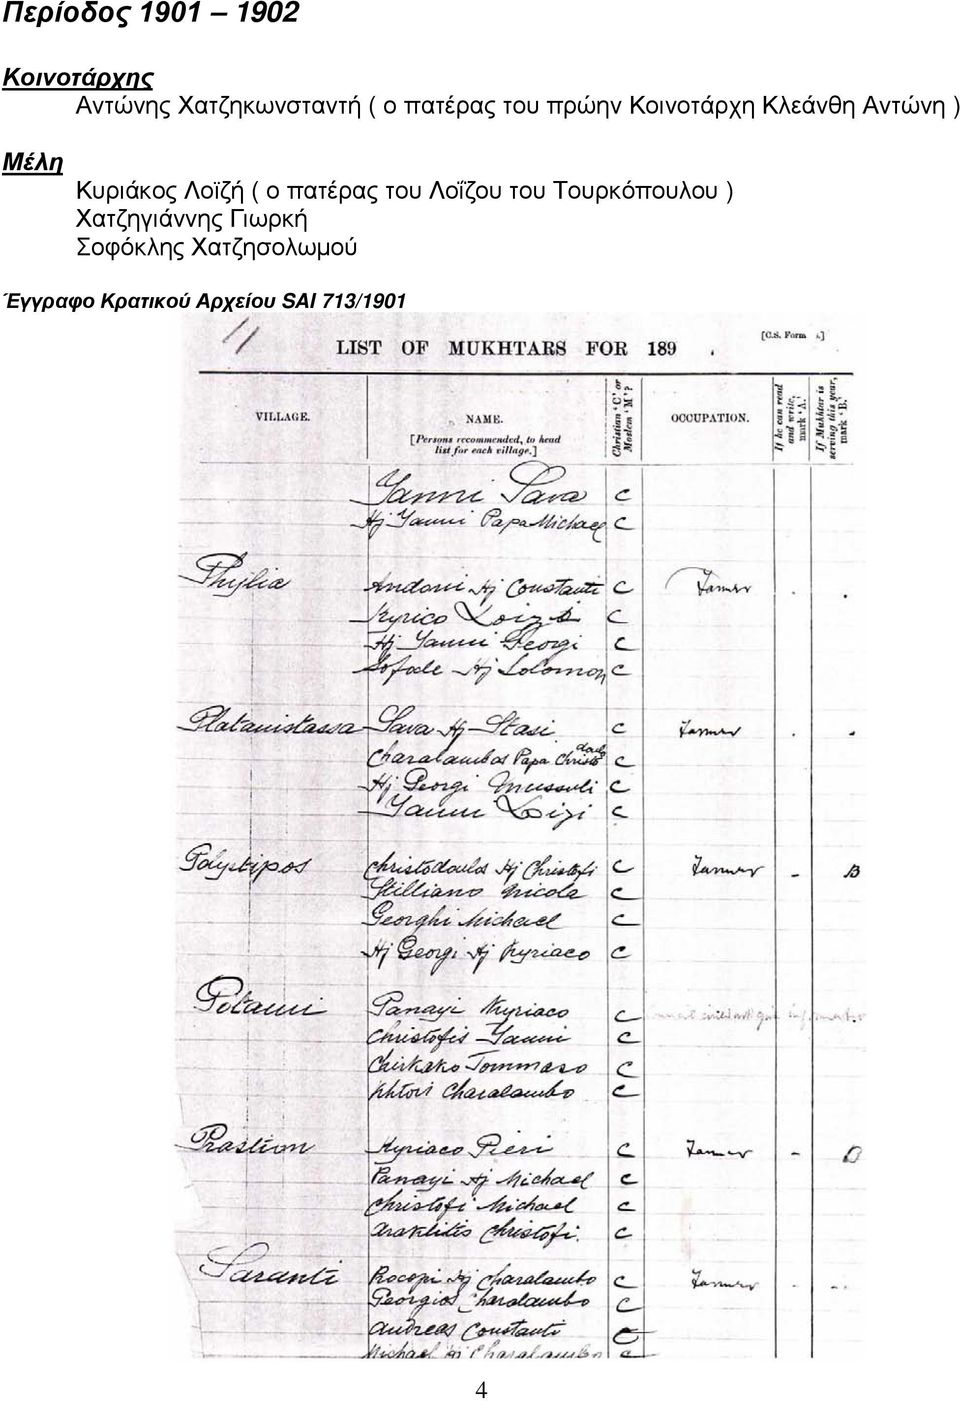 Περίοδος 1901 – 1902
Κοινοτάρχης
Αντώνης Χατζηκωνσταντή ( ο πατέρας του πρώην Κοινοτάρχη Κλεάνθη Αντώνη )
Μέλη
Κυριάκος Λοϊζή ( ο πατέρας του Λοΐζου του Τουρκόπουλου )
Χατζηγιάννης Γιωρκή
Σοφόκλης Χατζησολωμού
Έγγραφο Κρατικού Αρχείου SAI 713/1901
11
[C.S. Form .]
LIST OF MUKHTARS FOR 189 .
VILLAGE.
NAME.
[Persons recommended, to head
list for each village.]
Christian 'C' or
Moslem 'M'?
OCCUPATION.
If he can read
and write,
mark 'A.'
If Mukhtar is
serving this year,
mark 'B.'
Yanni Sava C
Hj Yanni Papa Michael C
Phylia Andoni Hj Constanti C Farmer . .
Kyrico Loizi C
Hj Yanni Georgi C
Sofocle Hj Solomon C
Platanistassa Sava Hj Stasi C Farmer . .
Charalambos Papa Christodoulo C
Hj Georgi Mussuli C
Yanni Loizi C
Polystipos Christodoulos Hj Christofi C Farmer - B
Stilliano Nicola C
Georghi Michael C
Hj Georgi Hj Kyriaco C
Potami Panayi Kyriaco C
Christofis Yanni C
Chirkako Tommaso C
Charalambo C
Prastion Kyriaco Pieri C Farmer -
Panayi Hj Michael C
Christofi Michael C
Araklitis Christofi. C
Saranti Procopi Hj Charalambo C Farmer - -
Georgios Charalambo C
Andreas Constanti C
Michael Hj Charalambo C
4